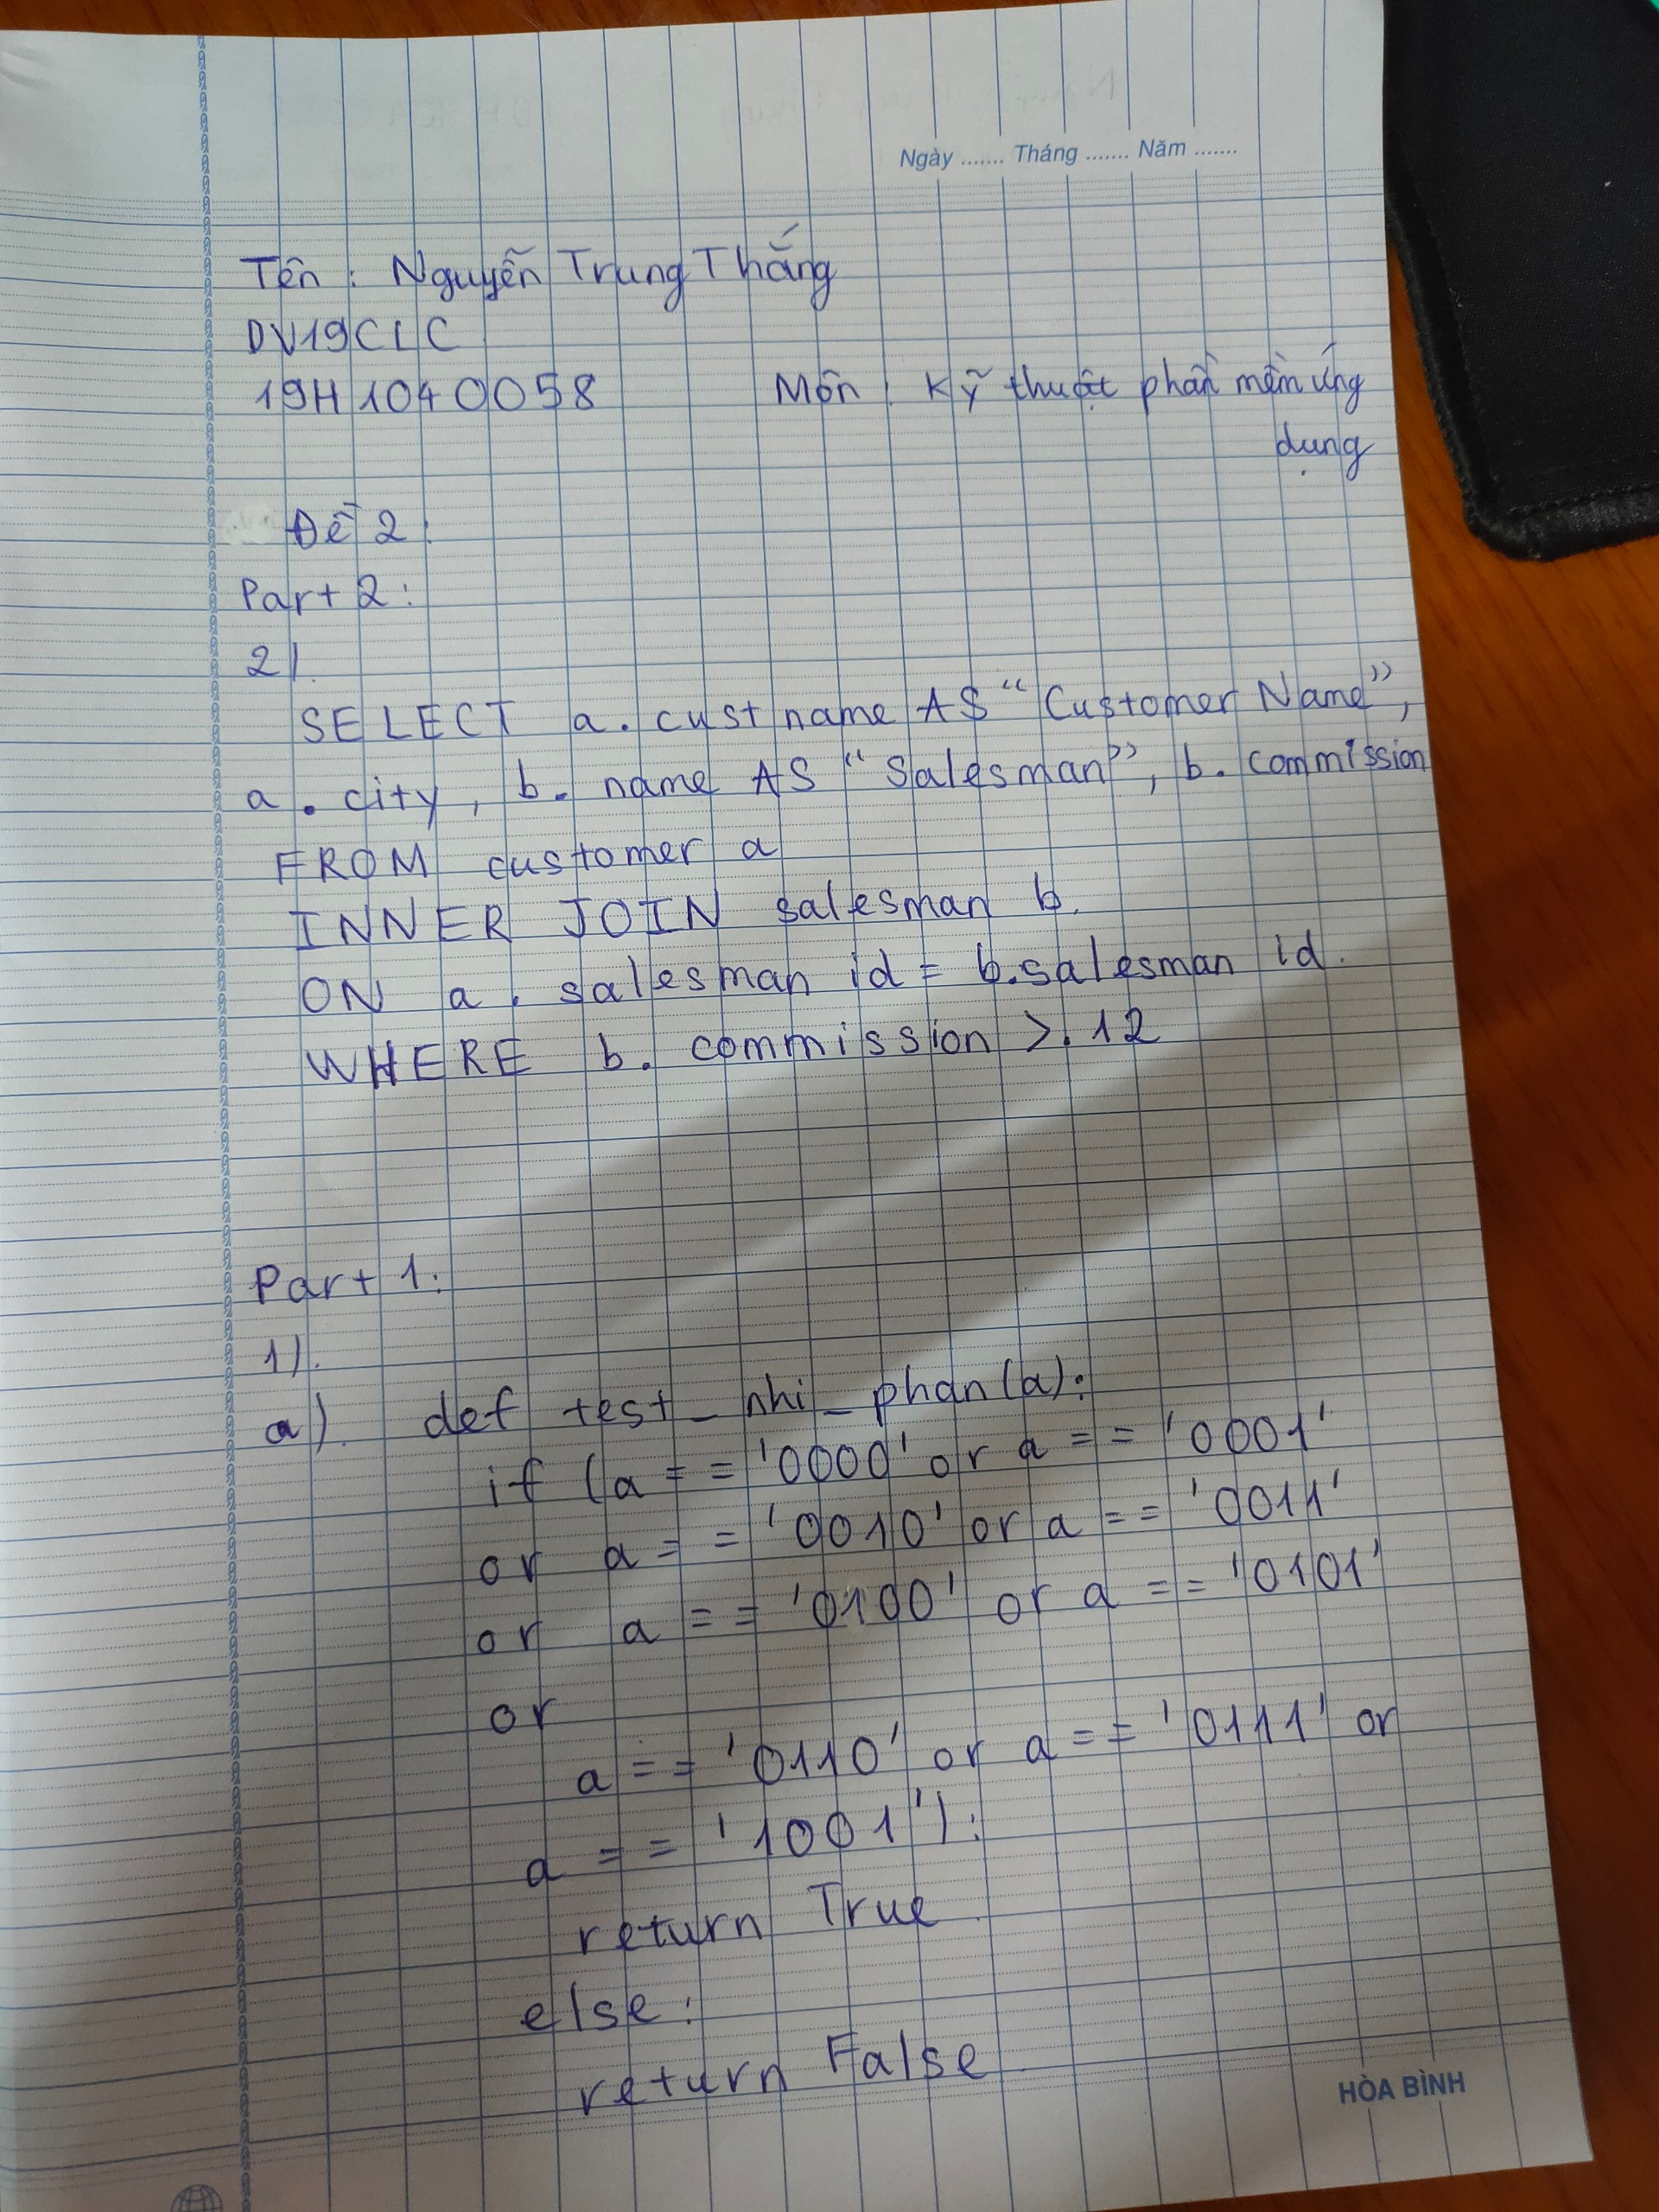 Ngày ....... Tháng ....... Năm .......
Tên : Nguyễn Trung Thắng
DV19CLC
19H1040058 Môn : Kỹ thuật phần mềm ứng
dụng
Đề 2:
Part 2:
2).
SELECT a. cust name AS “Customer Name”,
a . city, b. name AS “Salesman”, b. commission
FROM customer a
INNER JOIN salesman b.
ON a . salesman id = b.salesman id.
WHERE b. commission >.12
Part 1:
1).
a). def test_nhi_phan(a):
if (a == '0000' or a == '0001'
or a == '0010' or a == '0011'
or a == '0100' or a == '0101'
or
a == '0110' or a == '0111' or
a == '1001'):
return True
else:
return False
HÒA BÌNH